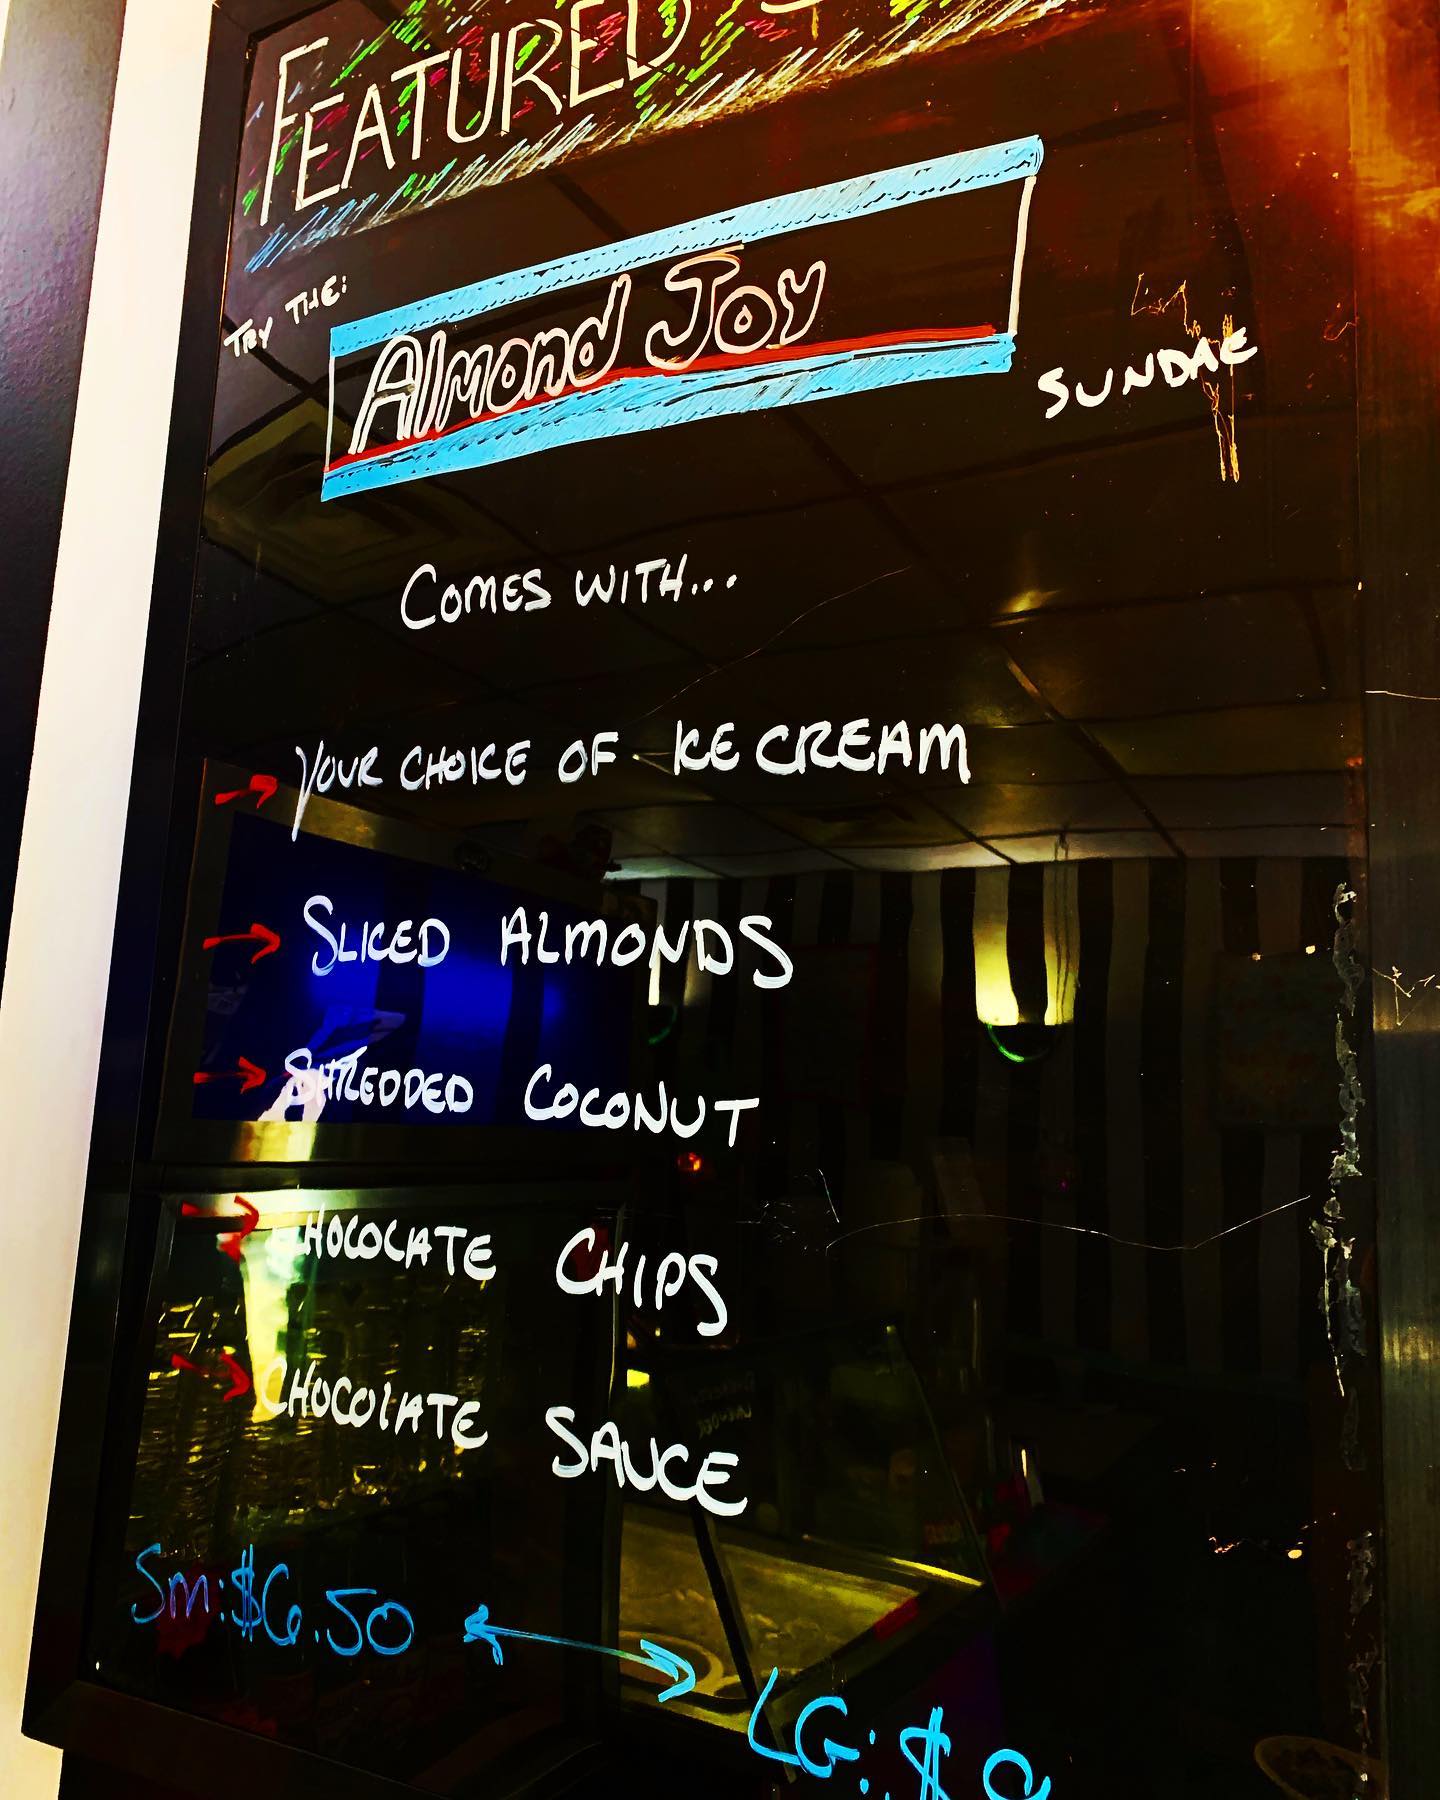 FEATURED
TRY THE:
Almond Joy
SUNDAE
COMES WITH...
→ YOUR CHOICE OF ICE CREAM
→ SLICED ALMONDS
→ SHREDDED COCONUT
→ CHOCOLATE CHIPS
→ CHOCOLATE SAUCE
Sm: $6.50 ↔ LG: $